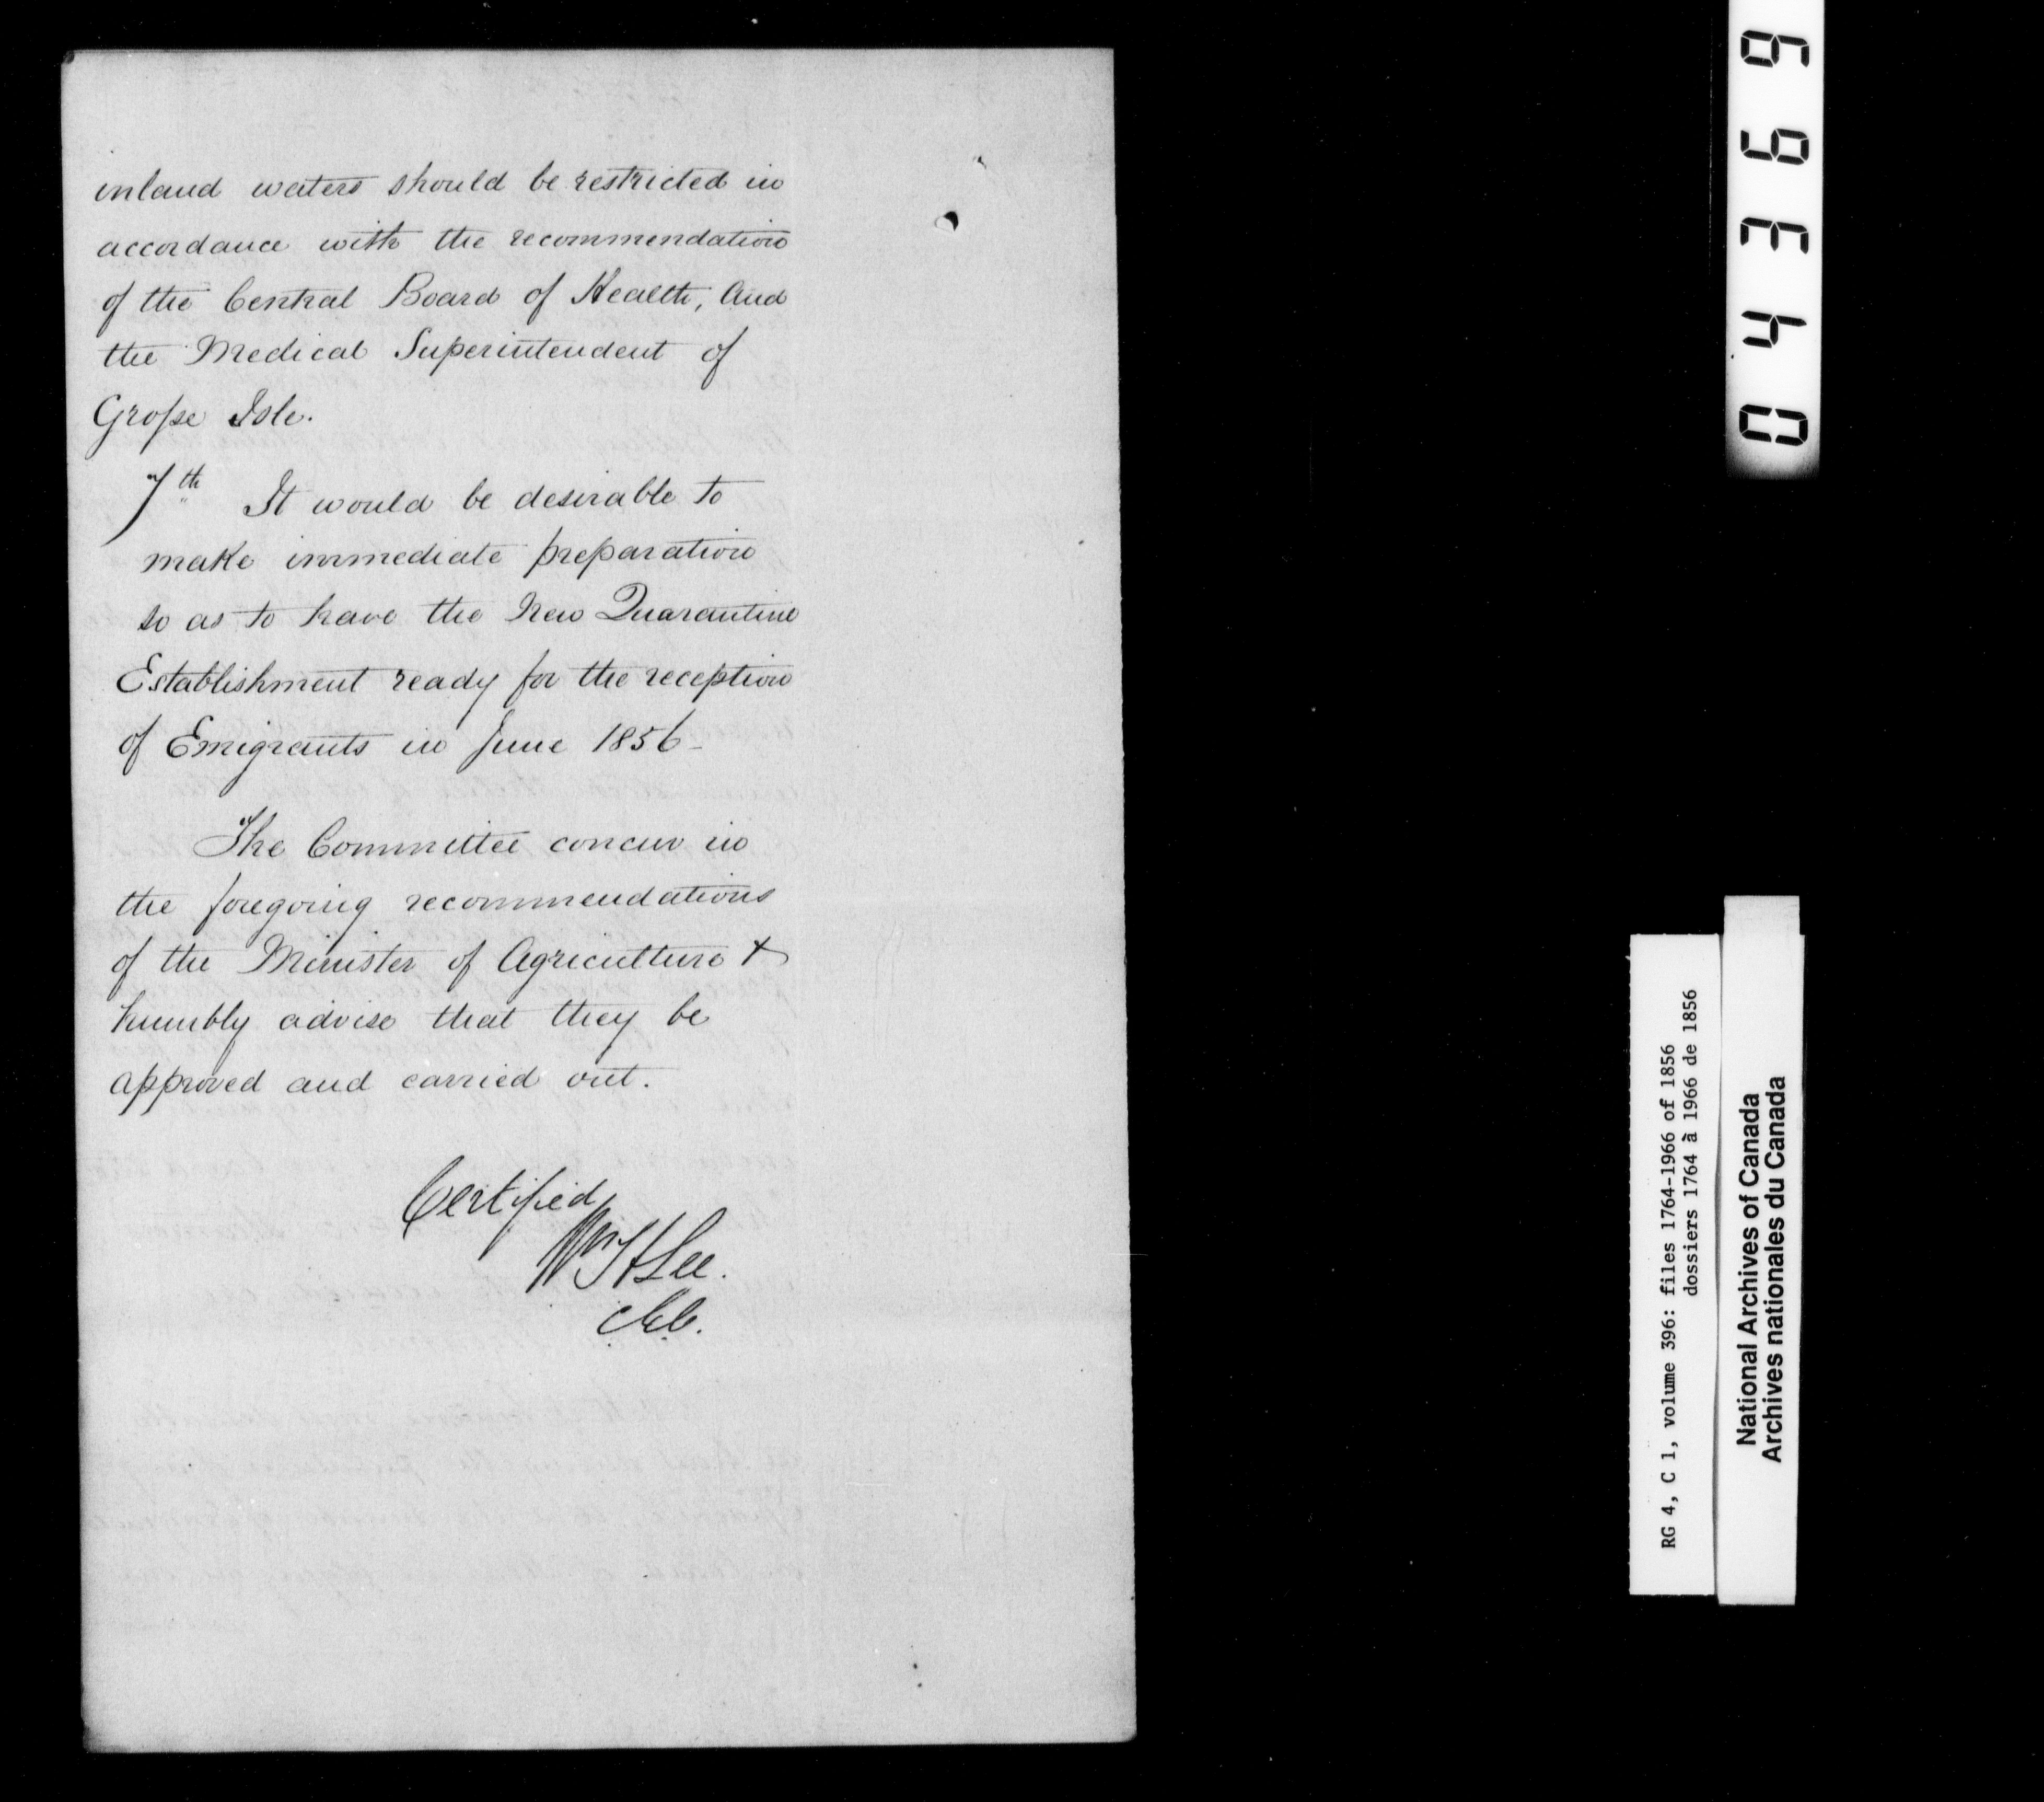 inland waters should be restricted in
accordance with the recommendation
of the Central Board of Health, And
the Medical Superintendent of
Grosse Isle.
7th It would be desirable to
make immediate preparation
so as to have the New Quarantine
Establishment ready for the reception
of Emigrants in June 1856 -
The Committee concur in
the foregoing recommendations
of the Minister of Agriculture &
humbly advise that they be
approved and carried out.
Certified
Wm H Lee.
C.E.C.
04369
RG 4, C 1, volume 396: files 1764-1966 of 1856
dossiers 1764 à 1966 de 1856
National Archives of Canada
Archives nationales du Canada